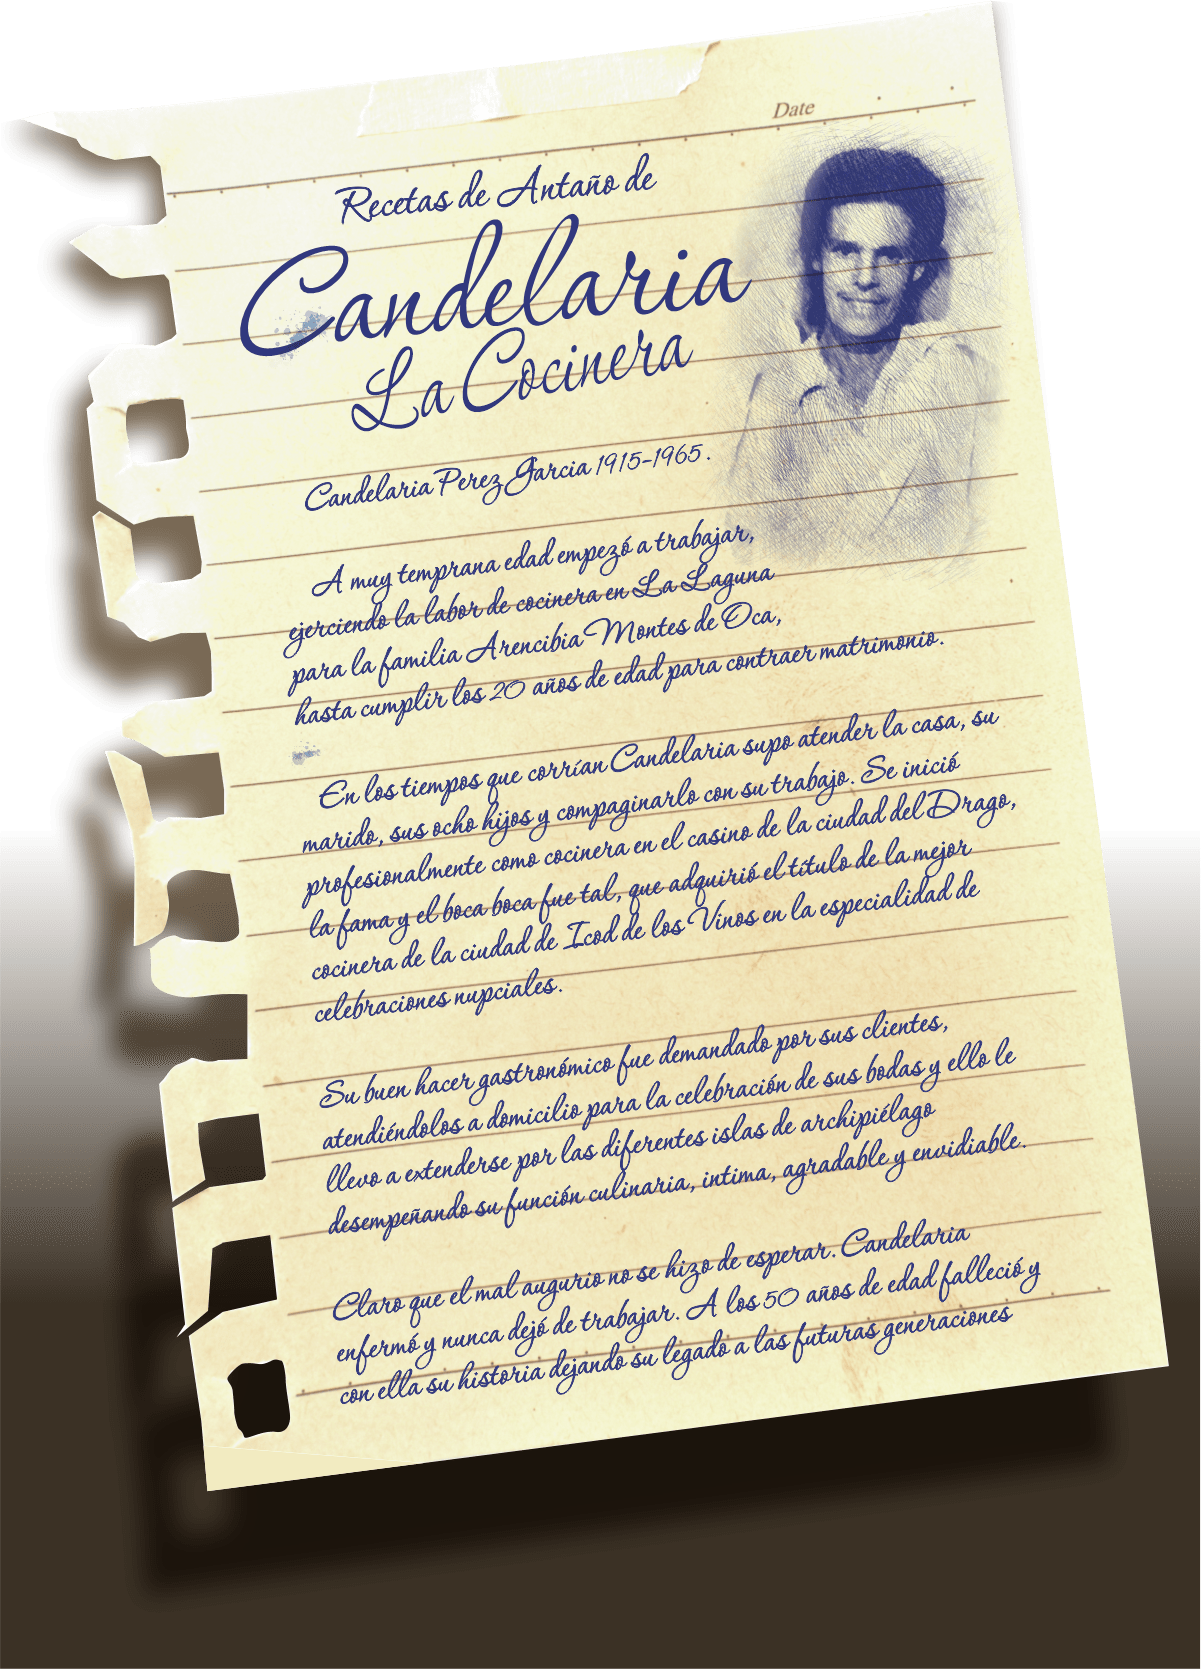 Date
Recetas de Antaño de
Candelaria
La Cocinera
Candelaria Perez Garcia 1915-1965.
A muy temprana edad empezó a trabajar,
ejerciendo la labor de cocinera en La Laguna
para la familia Arencibia Montes de Oca,
hasta cumplir los 20 años de edad para contraer matrimonio.
En los tiempos que corrían Candelaria supo atender la casa, su
marido, sus ocho hijos y compaginarlo con su trabajo. Se inició
profesionalmente como cocinera en el casino de la ciudad del Drago,
la fama y el boca boca fue tal, que adquirió el título de la mejor
cocinera de la ciudad de Icod de los Vinos en la especialidad de
celebraciones nupciales.
Su buen hacer gastronómico fue demandado por sus clientes,
atendiéndolos a domicilio para la celebración de sus bodas y ello le
llevo a extenderse por las diferentes islas de archipiélago
desempeñando su función culinaria, intima, agradable y envidiable.
Claro que el mal augurio no se hizo de esperar. Candelaria
enfermó y nunca dejó de trabajar. A los 50 años de edad falleció y
con ella su historia dejando su legado a las futuras generaciones